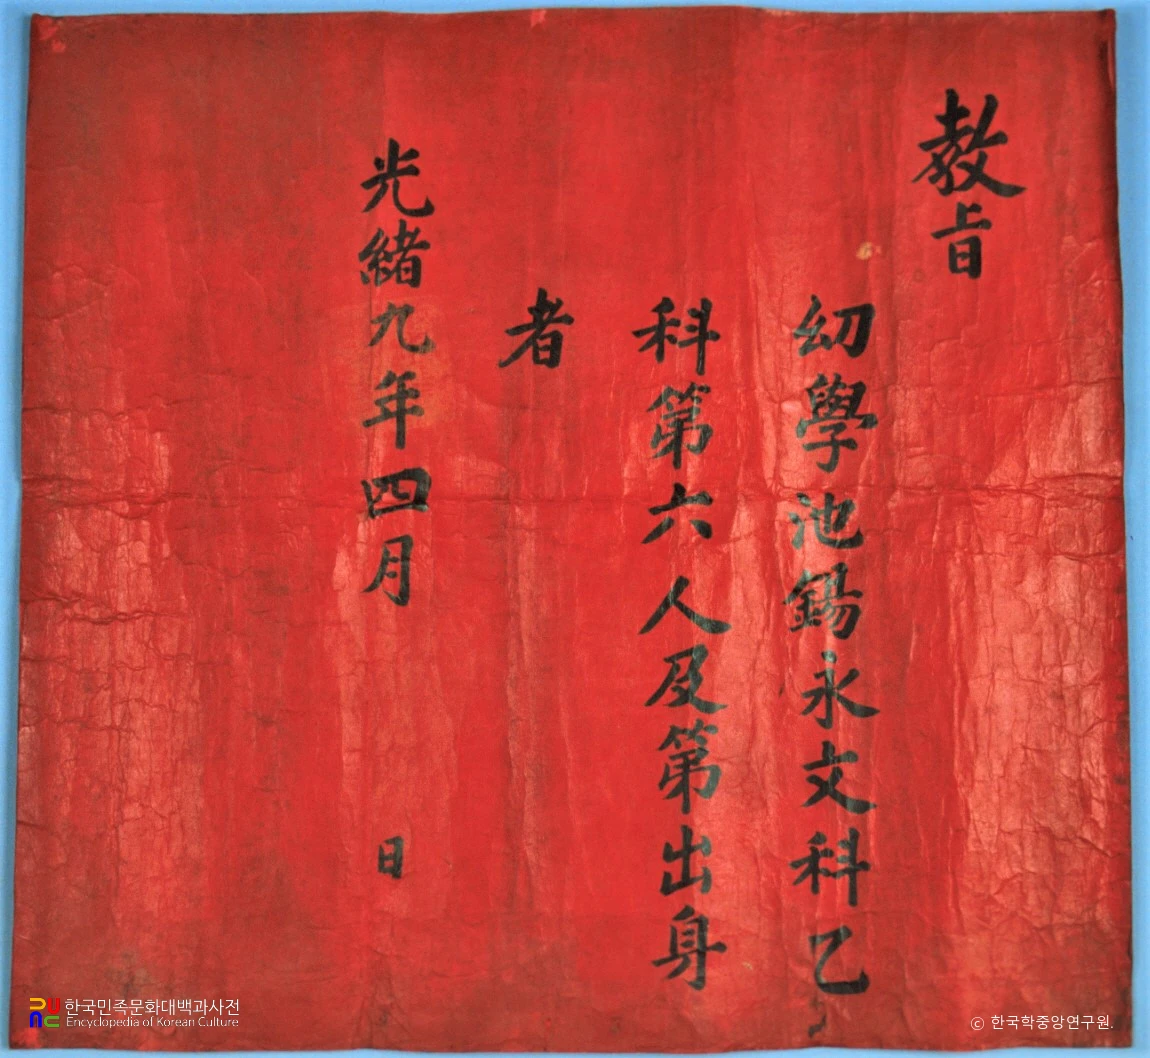 敎旨
幼學池錫永文科乙
科第六人及第出身
者
光緖九年四月 日
한국민족문화대백과사전
Encyclopedia of Korean Culture
ⓒ 한국학중앙연구원.